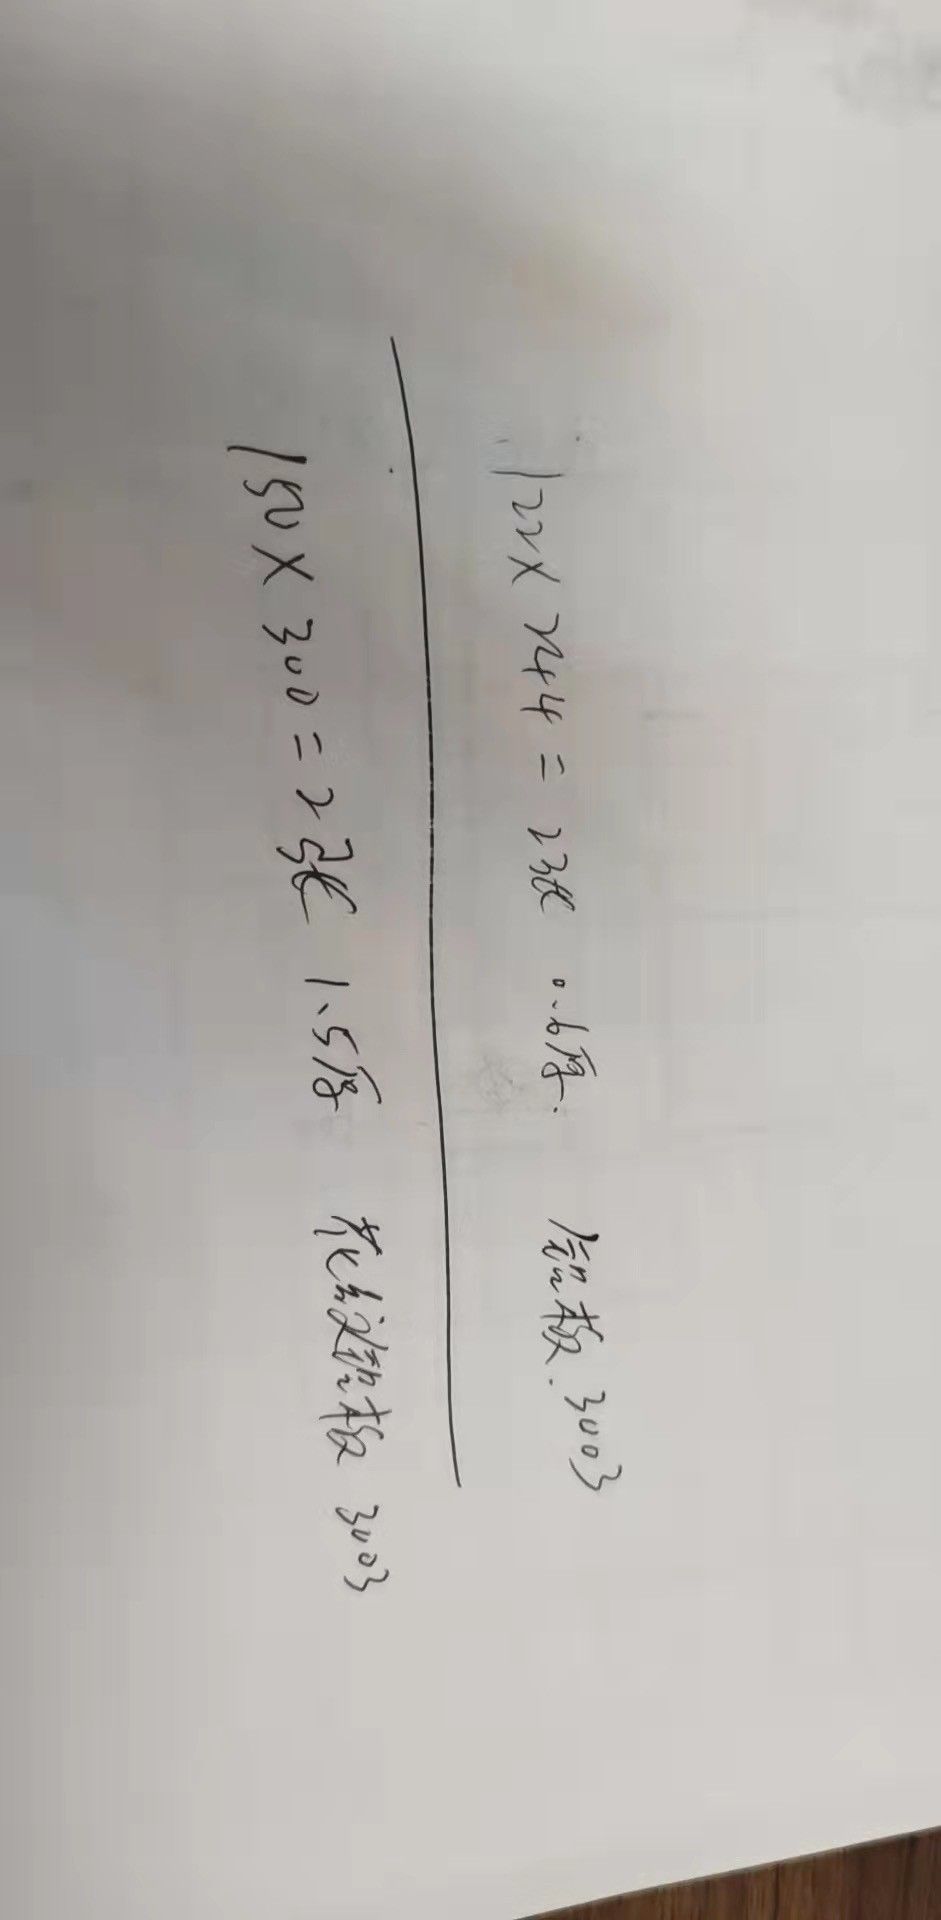 122X244=2张 0.6厚. 铝板.3003
150X300=2张 1.5厚 花纹铝板 3003